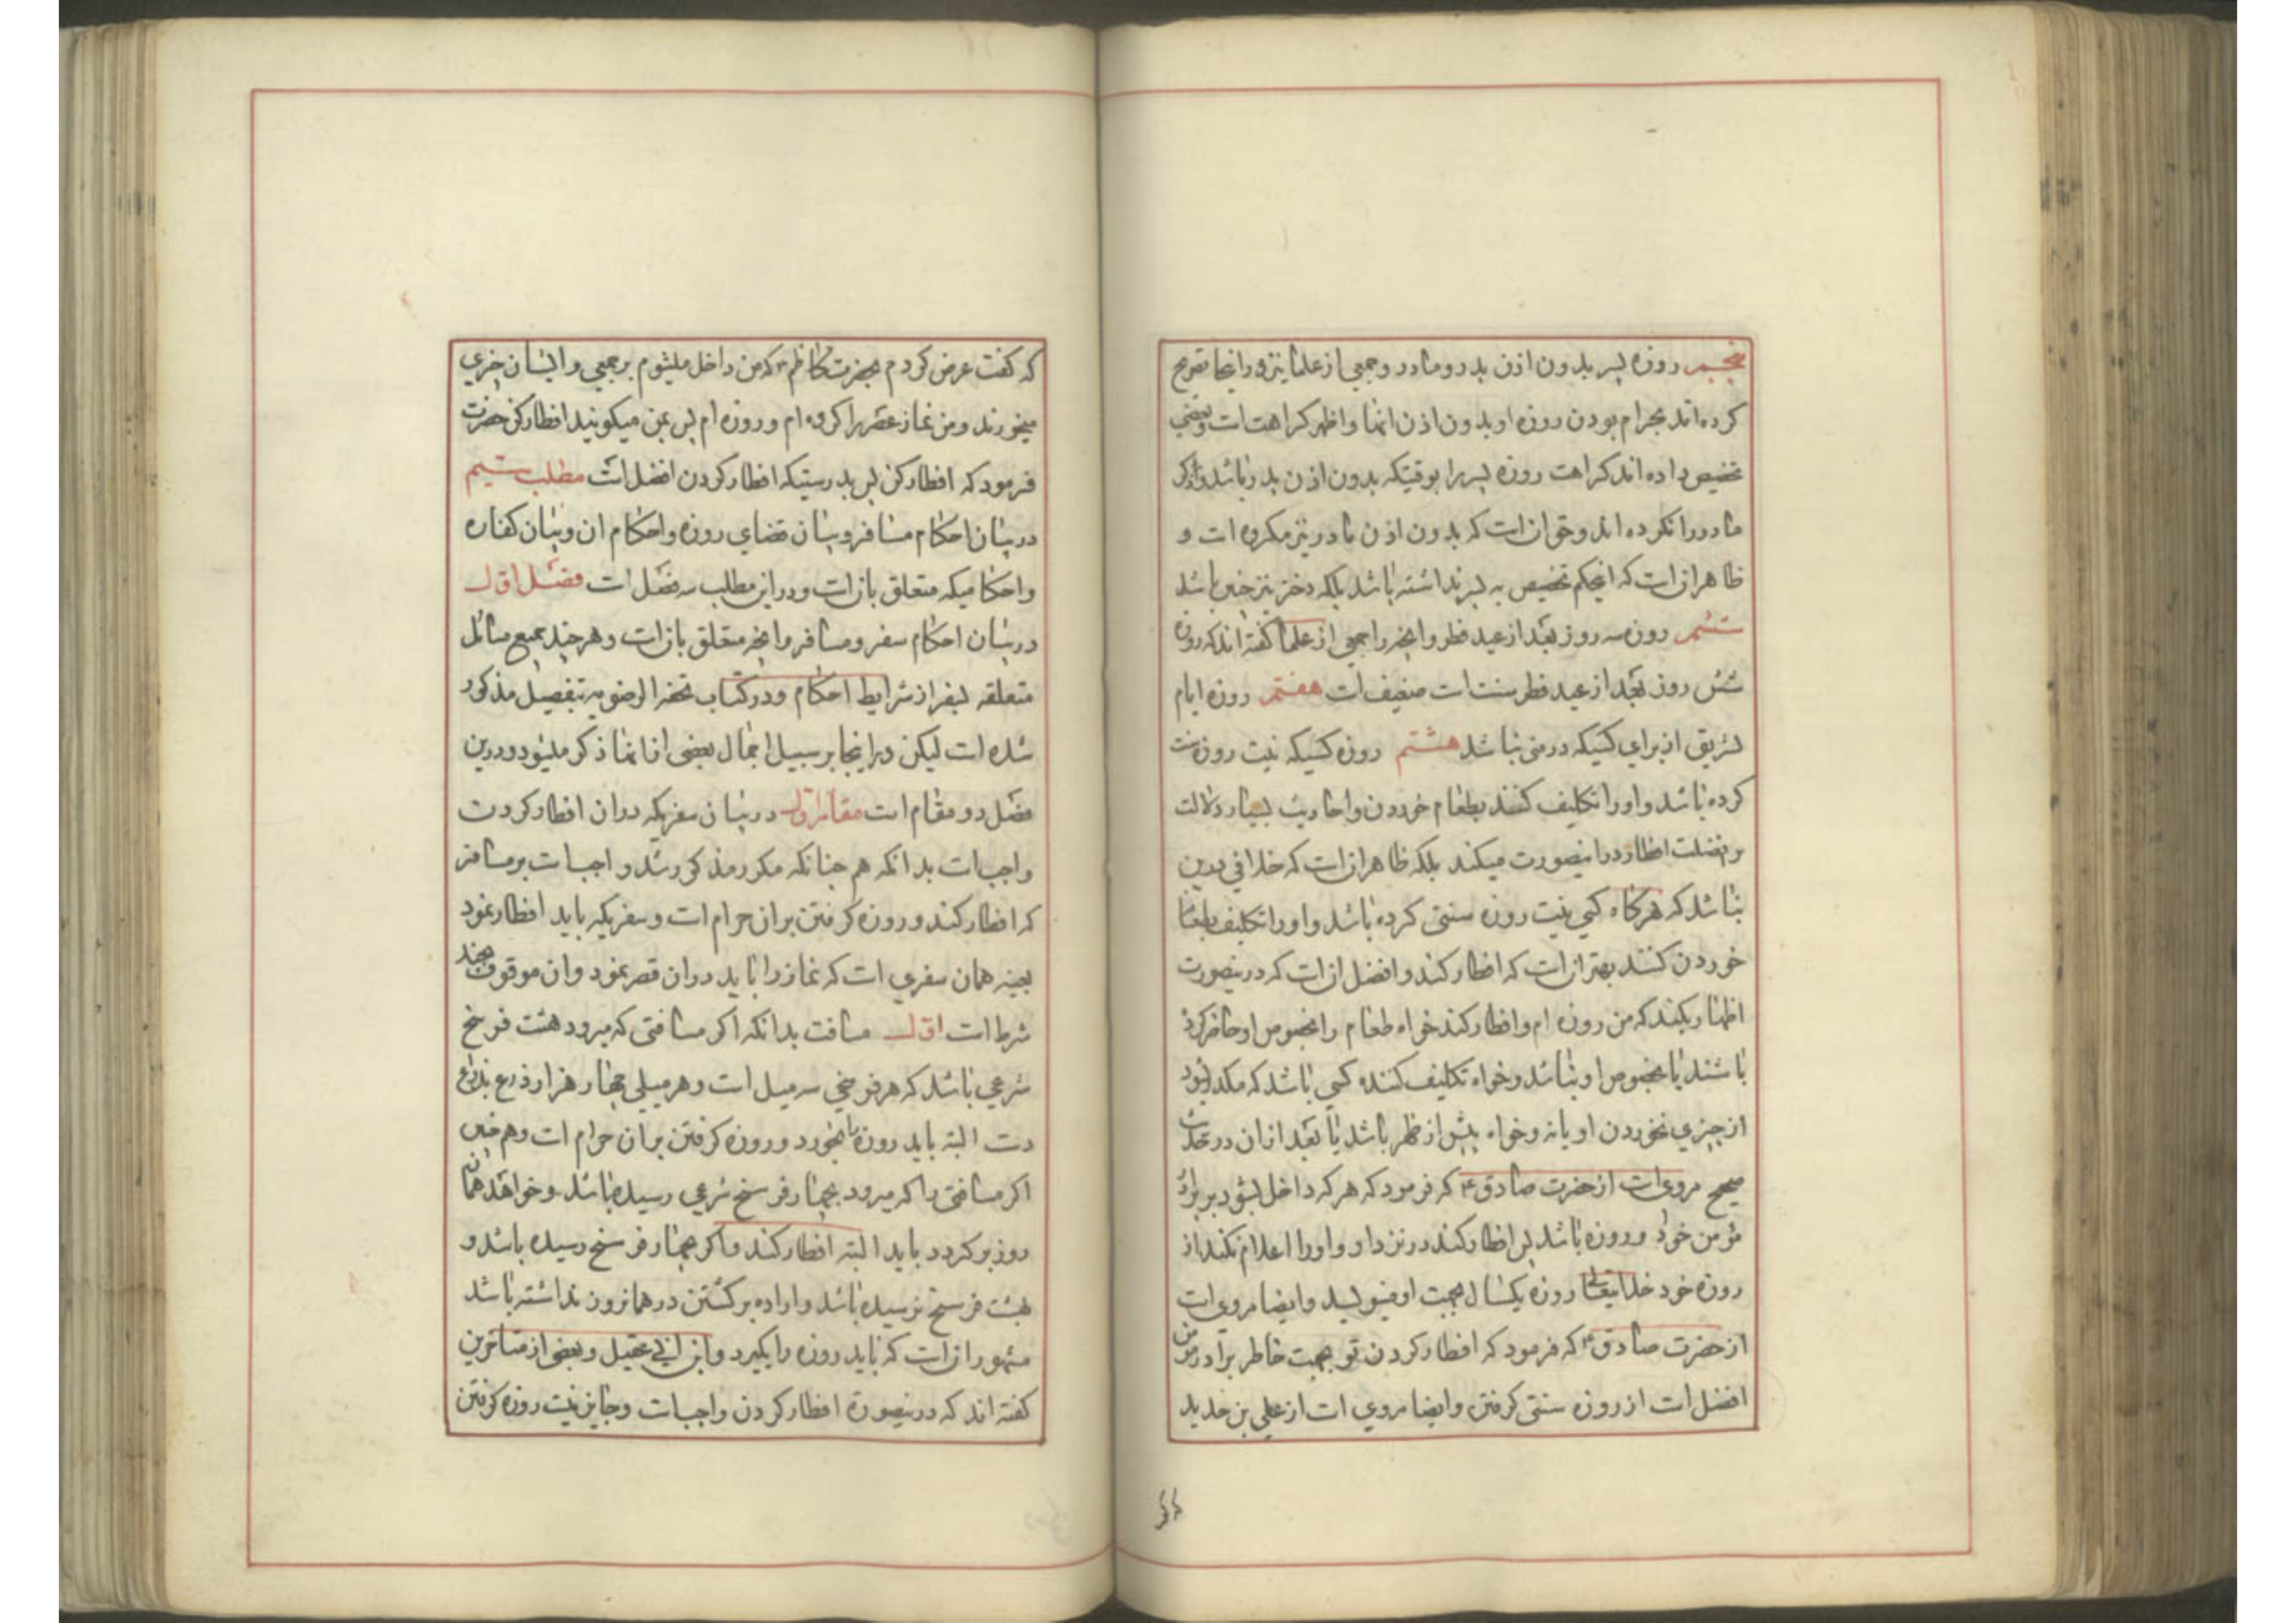 پنجم روزه پسر بدون اذن پدر و مادر و جمعی از علما نیز در اینجا تصریح
کرده اند بحرام بودن روزه او بدون اذن انها و اظهر کراهت است و بعضی
تخصیص داده اند کراهت روزه پسر را بوقتیکه بدون اذن پدر باشد و ذکر
مادر را نکرده اند و حق ان است که بدون اذن مادر نیز مکروه است و
ظاهر ان است که اینحکم تخصیص به پسر نداشته باشد بلکه دختر نیز چنین باشد
ششم روزه سه روز بعد از عید فطر و انچه را جمعی از علما گفته اند که روزه
شش روز بعد از عید فطر سنت است ضعیف است هفتم روزه ایام
تشریق از برای کسیکه در منی نباشد هشتم روزه کسیکه نیت روزه سنت
کرده باشد و او را تکلیف کنند بطعام خوردن و احادیث بسیار دلالت
بر فضیلت افطار در اینصورت میکند بلکه ظاهر ان است که خلافی درین
نباشد که هرگاه کسی نیت روزه سنتی کرده باشد و او را تکلیف بطعام
خوردن کنند بهتر ان است که افطار کند و افضل ان است که درینصورت
اظهار نکند که من روزه ام و افطار کند خواه طعام را مخصوص او حاضر کرده
باشند یا مخصوص او نباشد و خواه تکلیف کننده کسی باشد که مکدر شود
از چیزی نخوردن او یا نه و خواه پیش از ظهر باشد یا بعد از ان در حدیث
صحیح مرویست از حضرت صادق ع که فرمود که هر که داخل بشود بر برادر
مؤمن خود و روزه باشد پس افطار کند در نزد او و او را اعلام نکند از
روزه خود خدایتعالی روزه یکسال بجهت او مینویسد و ایضا مروی است
از حضرت صادق ع که فرمود که افطار کردن تو بجهت خاطر برادر مؤمن
افضل است از روزه سنتی گرفتن و ایضا مروی است از علی بن حدید
که گفت عرض کردم بحضرت کاظم ع که من داخل میشوم بر جمعی و ایشان چیزی
میخورند و من نماز عصر را کرده ام و روزه ام پس بمن میگویند افطار کن حضرت
فرمود که افطار کن پس بدرستیکه افطار کردن افضل است مطلب سیم
در بیان احکام مسافر و بیان قضای روزه و احکام ان و بیان کفاره
و احکامیکه متعلق بان است و در این مطلب سه فصل است فصل اول
در بیان احکام سفر و مسافر و انچه متعلق بان است و هر چند جمیع مسائل
متعلقه بسفر از شرایط احکام و در کتاب تحفه الرضویه بتفصیل مذکور
شده است لیکن در اینجا بر سبیل اجمال بعضی از انها ذکر میشود و درین
فصل دو مقام است مقام اول در بیان سفریکه در ان افطار کردن
واجب است بدانکه هم چنانکه مکرر مذکور شد واجب است بر مسافر
که افطار کند و روزه گرفتن بر ان حرام است و سفریکه باید افطار نمود
بعینه همان سفری است که نماز را باید در ان قصر نمود و ان موقوف بچند
شرط است اول مسافت بدانکه اگر مسافتی که میرود هشت فرسخ
شرعی باشد که هر فرسخی سه میل است و هر میلی چهار هزار ذرع بذرع
دست البته باید روزه را بخورد و روزه گرفتن بر ان حرام است و هم چنین
اگر مسافتی را که میرود بچهار فرسخ شرعی رسیده باشد و خواهد همان
روز برگردد باید البته افطار کند و اگر بچهار فرسخ رسیده باشد و
بهشت فرسخ نرسیده باشد و اراده برگشتن در همانروز نداشته باشد
مشهور ان است که باید روزه را بگیرد و ابن ابی عقیل و بعضی از متاخرین
گفته اند که درینصورة افطار کردن واجب است و جایز نیست روزه گرفتن